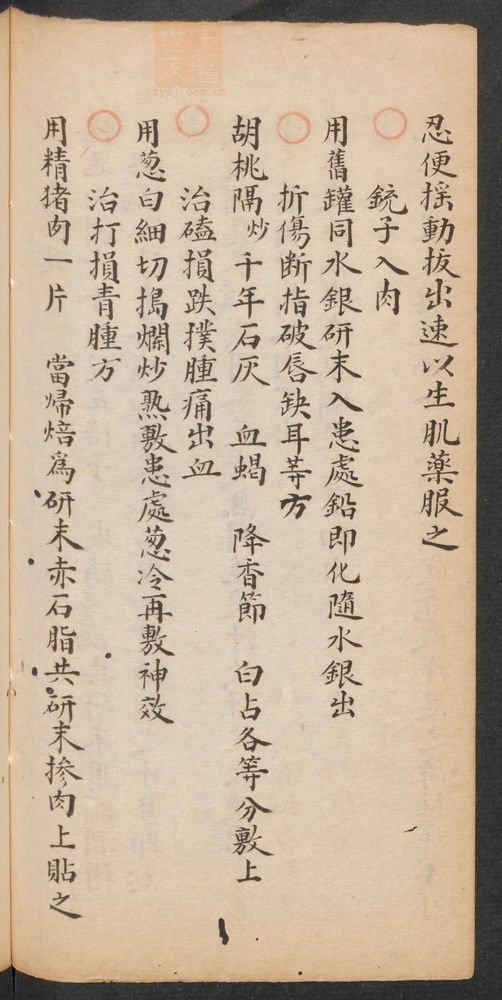 忍便揺動拔出速以生肌藥服之
銃子入肉
用舊罐同水銀研末入患處鉛即化隨水銀出
折傷断指破唇缺耳䓁方
胡桃隔炒 千年石灰 血蝎 降香節 白占各等分敷上
治磕損跌撲腫痛出血
用葱白細切搗爛炒熟敷患處葱冷再敷神效
治打損青腫方
用精猪肉一片 當歸焙爲研末赤石脂共研末掺肉上貼之